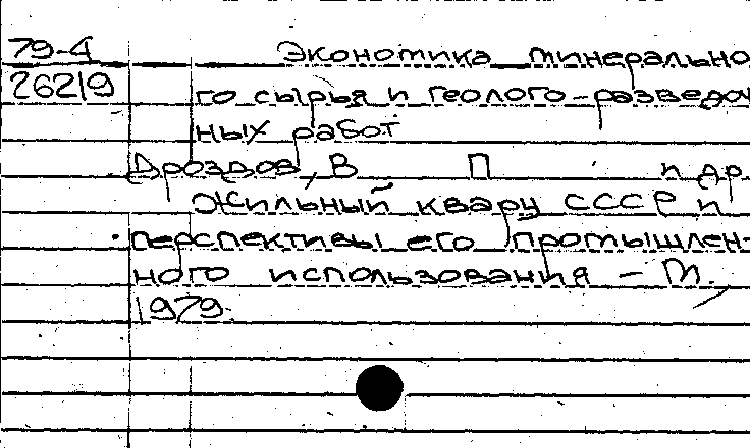 79-4 Экономика минерально
26219 го сырья и геолого-разведоч
ных работ
Дроздов, В П и др
Жильный кварц СССР и
перспективы его промышлен-
ного использования - М.
1979.